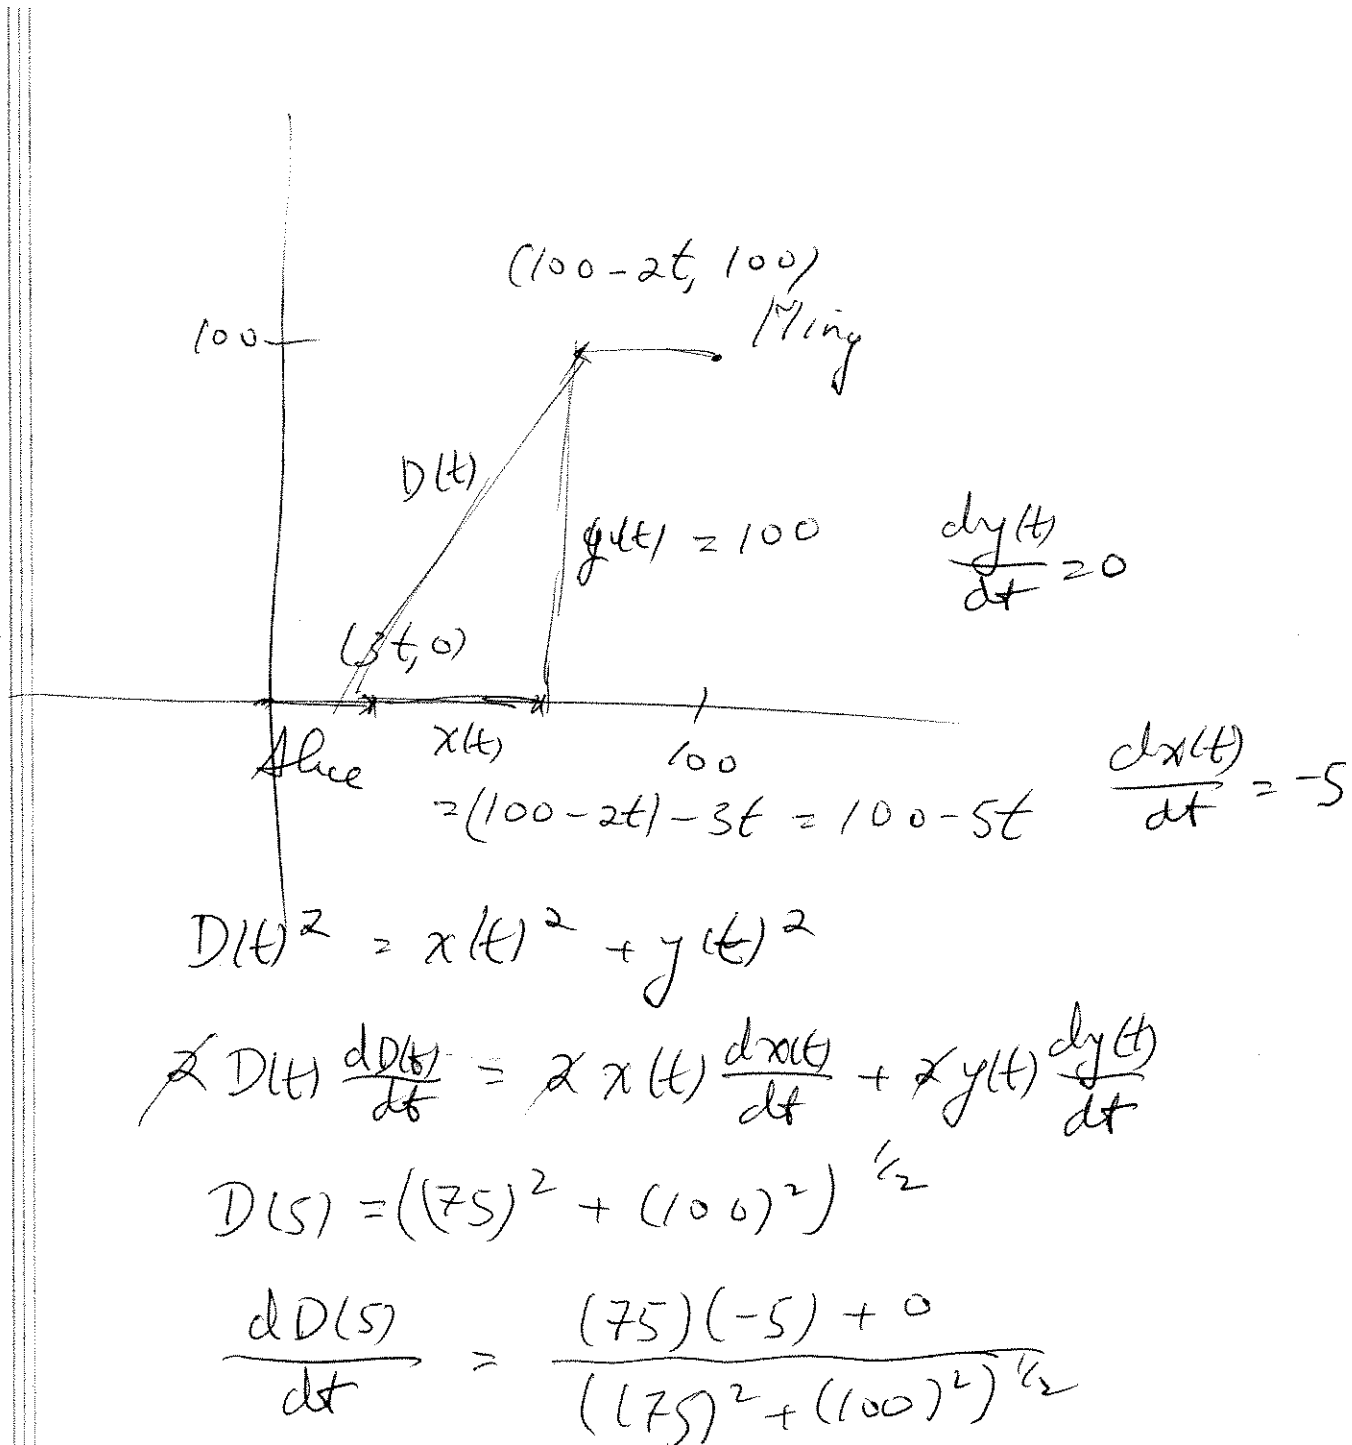 (100-2t, 100)
Ming
100
D(t)
y(t) = 100
dy(t)/dt = 0
(3t, 0)
Alice
x(t)
100
= (100-2t)-3t = 100-5t
dx(t)/dt = -5
D(t)² = x(t)² + y(t)²
2 D(t) dD(t)/dt = 2 x(t) dx(t)/dt + 2 y(t) dy(t)/dt
D(5) = ((75)² + (100)²)^1/2
dD(5)/dt = (75)(-5) + 0 / ((75)² + (100)²)^1/2